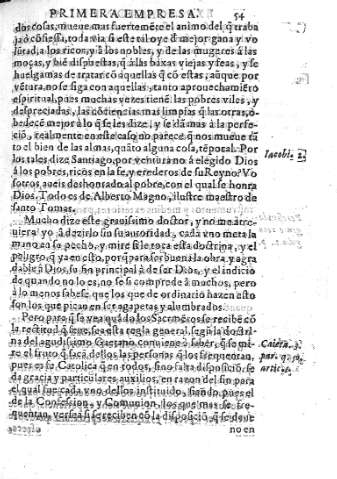 PRIMERA EMPRESA. 54
dos cosas, mueve mas fuertemẽte el animo del q̃ traba
ja ó cõfiessa, toda via, â este tal oye de mejor gana y vo
lũtad, a los ricos, y â los nobles, y de las mugeres â las
moças, y biẽ dispuestas, q̃ â las baxas viejas y feas, y se
huelgamas de tratar cõ aquellas q̃ cõ estas, aũque por
vẽtura, no se siga con aquellas, tanto aprouechamiẽto
espiritual, pues muchas vezes tienẽ las pobres viles, y
despreciadas, las cõciencias mas limpias q̃ las otras, o-
bedecẽ mejor â lo q̃ se les dize, y se dâ mas â la perfe-
ciõ, realmente en este caso no parece q̃ nos mueue tã
to el bien de las almas, quãto alguna cosa, tẽporal. Por
los tales dize Santiago, por ventura no â elegido Dios
â los pobres, ricos en la fe, y erederos de su Reyno? Vo
sotros aueis deshonrado al pobre, con el qual se honra
Dios. Todo es de Alberto Magno, ilustre maestro de
santo Tomas.
Iacobi. 2.
Mucho dize este grauissimo doctor, y no me atre-
uiera yo â dezirlo sin su autoridad, cada vno meta la
mano en su pecho, y mire si le toca esta doctrina, y el
peligro, q̃ ya en esto, por q̃ para ser buena la obra, y agra
dable â Dios, su fin principal â de ser Dios, y el indicio
de quando no lo es, no se si comprede â muchos, pero
â lo menos sabese, que los que de ordinario hazen esto
son los que pican en ser agapetas y alumbrados.
Pero para q̃ se vea quãdo los Sacramẽtos se recibẽ cõ
la rectitud q̃ deue, sea esta regla general, segũ la doctri
na del agudissimo Gaetano, conviene â saber, q̃ se mi-
re el fruto q̃ sacã dellos las personas q̃ los frequentan,
pues es fe Catolica q̃ en todos, sino falta disposiciõ, se
da gracia y particulares auxilios, en razon del fin para
el qual fue cada vno dellos instituido, siendo pues el
de la Confession, y Comunion, los que mas se fre-
quentan, verseâ si se reciben cõ la disposiciõ, q̃ se deue
Caieta. 3.
par. q. 79.
articu.
no en